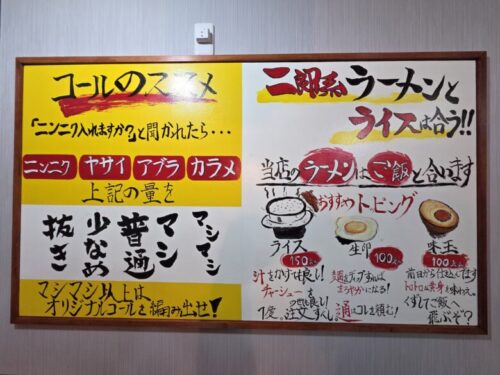 コールのススメ
「ニンニク入れますか?」と聞かれたら・・・
ニンニク ヤサイ アブラ カラメ
上記の量を
抜き 少なめ 普通 マシ マシマシ
マシマシ以上は
オリジナルコールを編み出せ!
二郎系ラーメンと
ライスは合う!!
当店のラーメンはご飯と合います
おすすめトッピング
ライス
150円
汁をかけて良し!
チャーシューを
のせ良し!
1度。注文すべし。
生卵
100円
麺をディップすれば
まろやかになる!
通はコレを頼む!
味玉
100円
前日から仕込んでます
トロトロ黄身を味わえ。
くずしてご飯へ
飛ぶぞ?